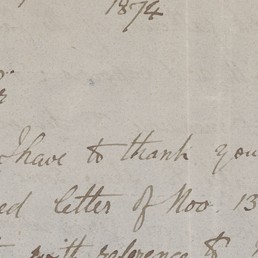 1874
I have to thank you
ed letter of Nov. 13
with reference to